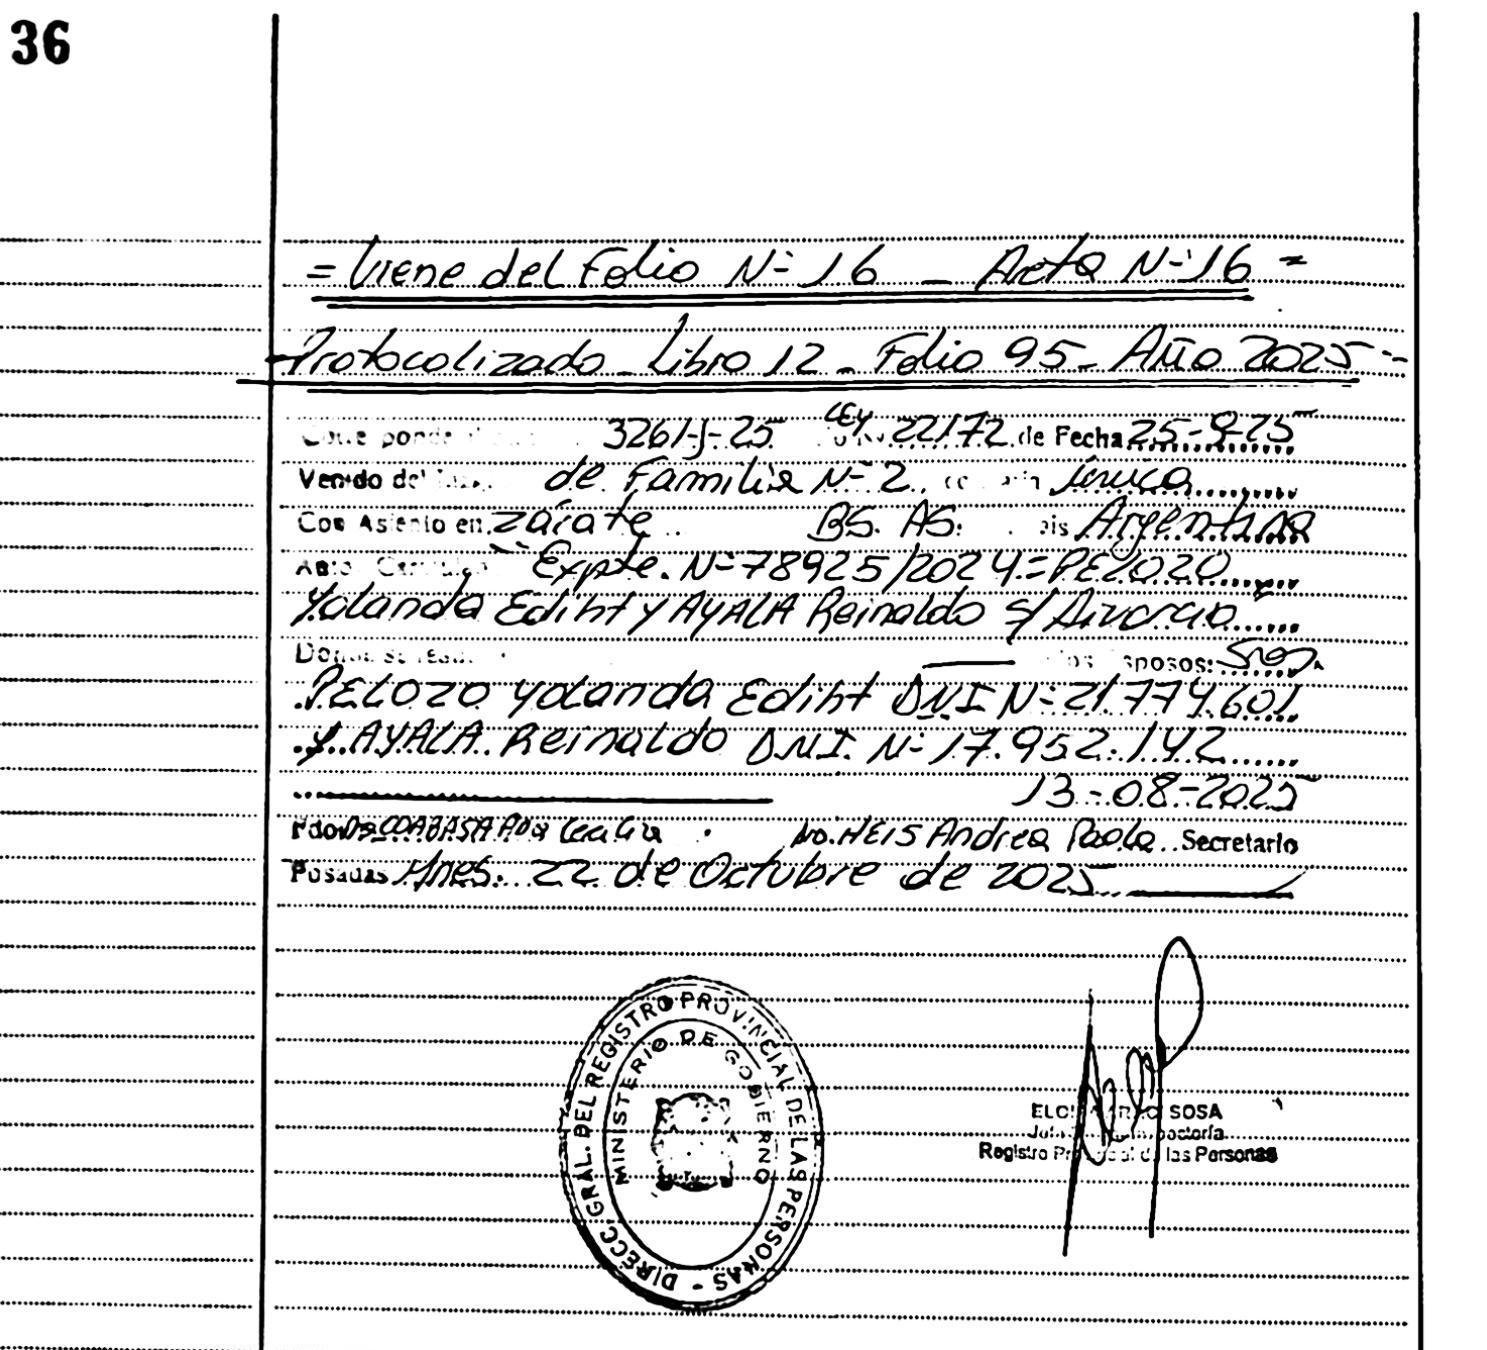 36
= Viene del Folio N- 16 - Acta N- 16 =
- Protocolizado - Libro 12 - Folio 95 - Año 2025 -
3261-J-25 LEY 22172 de Fecha 25-9-25
Venido del de Familia N- 2 única
Con Asiento en Zárate BS. AS. Argentina
Expte. N- 78925/2024 = PELOZO
Yolanda Ediht y AYALA Reinaldo s/ Divorcio
esposos:
PELOZO Yolanda Ediht DNI N- 21.774.601
y AYALA Reinaldo D.N.I. N- 17.952.142
13-08-2025
HEIS Andrea Paola Secretario
Posadas Mnes. 22 de Octubre de 2025
DIRECC. GRAL. DEL REGISTRO PROVINCIAL DE LAS PERSONAS -
MINISTERIO DE GOBIERNO
SOSA
Registro Provincial de las Personas